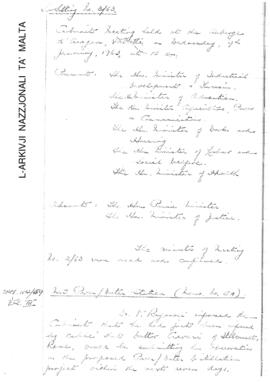 Sitting No. 3/63
Cabinet Meeting held at the Auberge
d'Aragon, Valletta on Wednesday, 9th
January, 1963, at 10 am.
Present: The Hon. Minister of Industrial
Development & Tourism.
The Hon. Minister of Education.
The Hon. Minister Agriculture, Power
& Communications.
The Hon. Minister of Works and
Housing
The Hon. Minister of Labour and
Social Welfare.
The Hon. Minister of Health
Absent: The Hon. Prime Minister
The Hon. Minister of Justice.
The minutes of Meeting
No. 2/63 were read and confirmed.
New Power/Water Station (Memo. No.
informed the
Cabinet that he had just been
by cable that
Rome, would be submitting his
on the proposed Power/Water Distillation
project within the next seven days.
L-ARKIVJI NAZZJONALI TA' MALTA